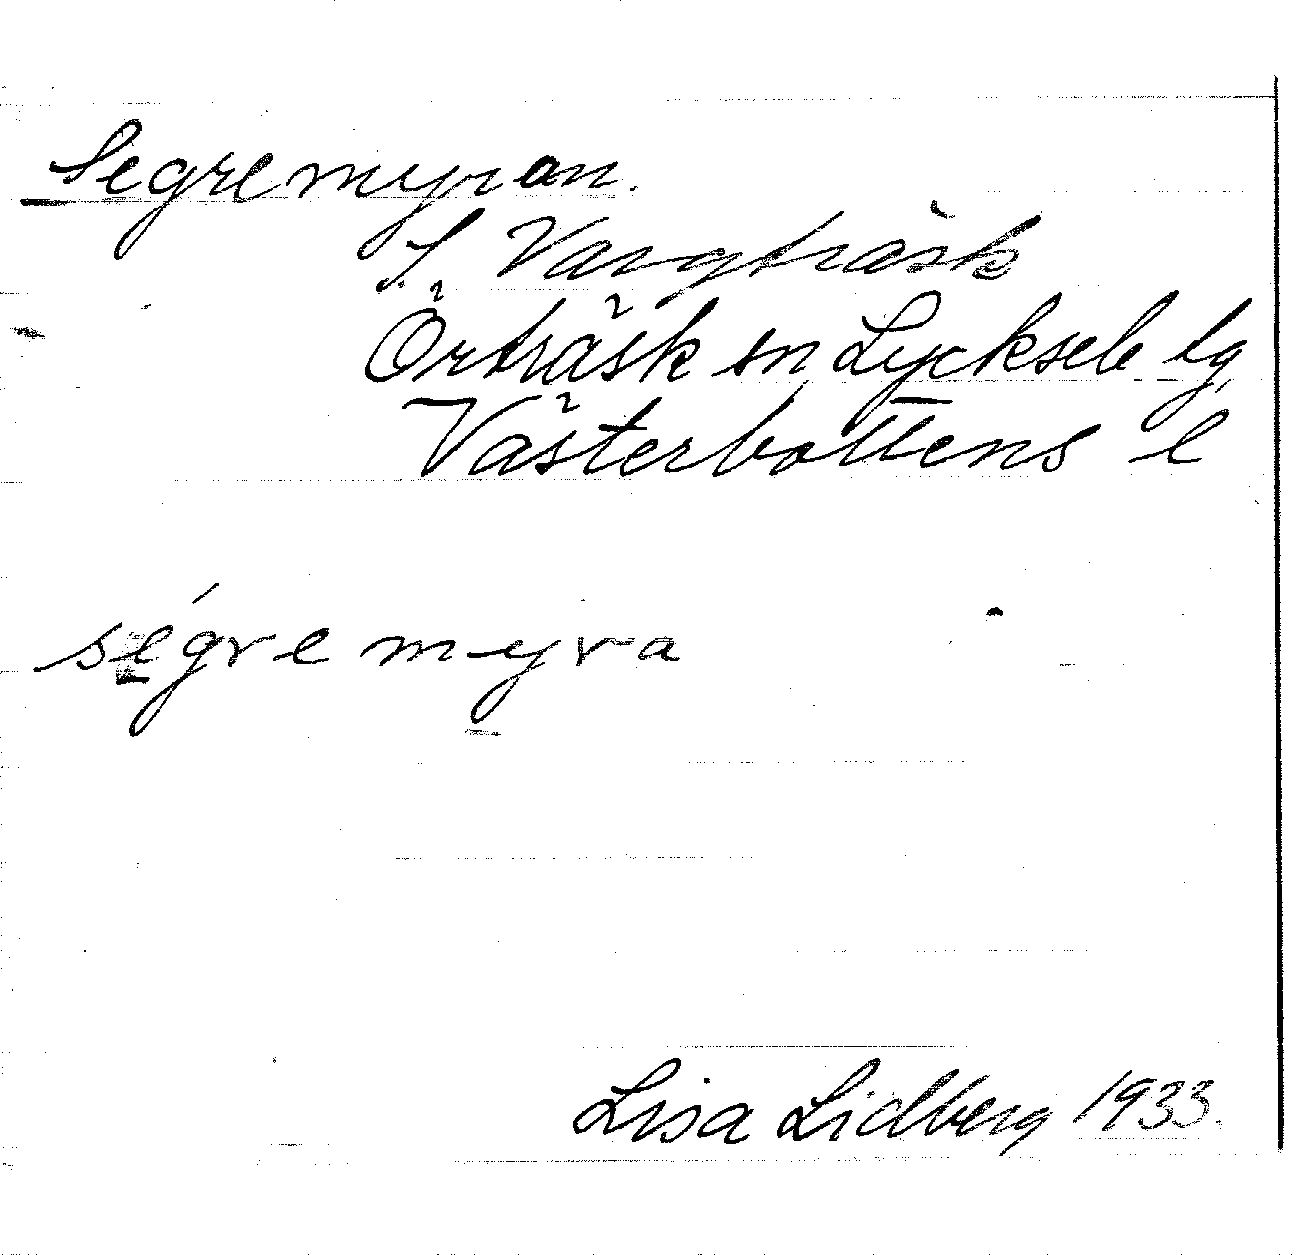 Segremyran.
S. Vargträsk
Örträsk sn Lycksele lg
Västerbottens l
ségre myra
Lisa Lidberg 1933.